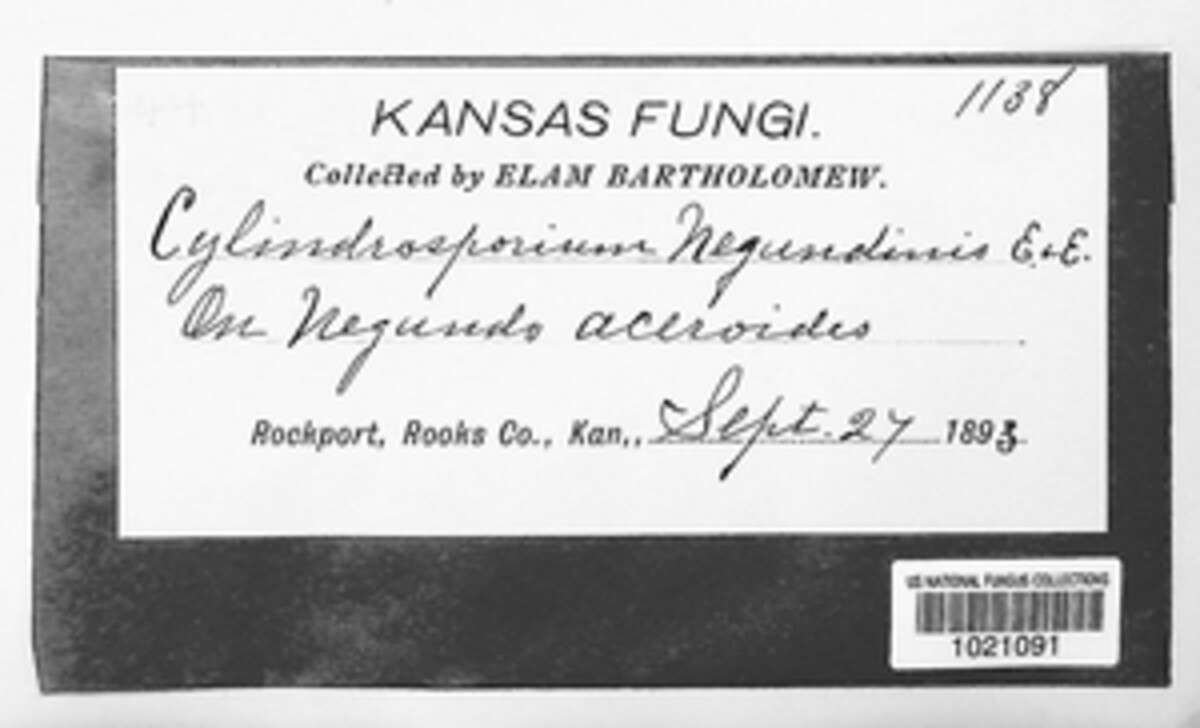 1138
KANSAS FUNGI.
Collected by ELAM BARTHOLOMEW.
Cylindrosporium Negundinis E. & E.
On Negundo aceroides
Rockport, Rooks Co., Kan., Sept. 27 1893
US NATIONAL FUNGUS COLLECTIONS
1021091